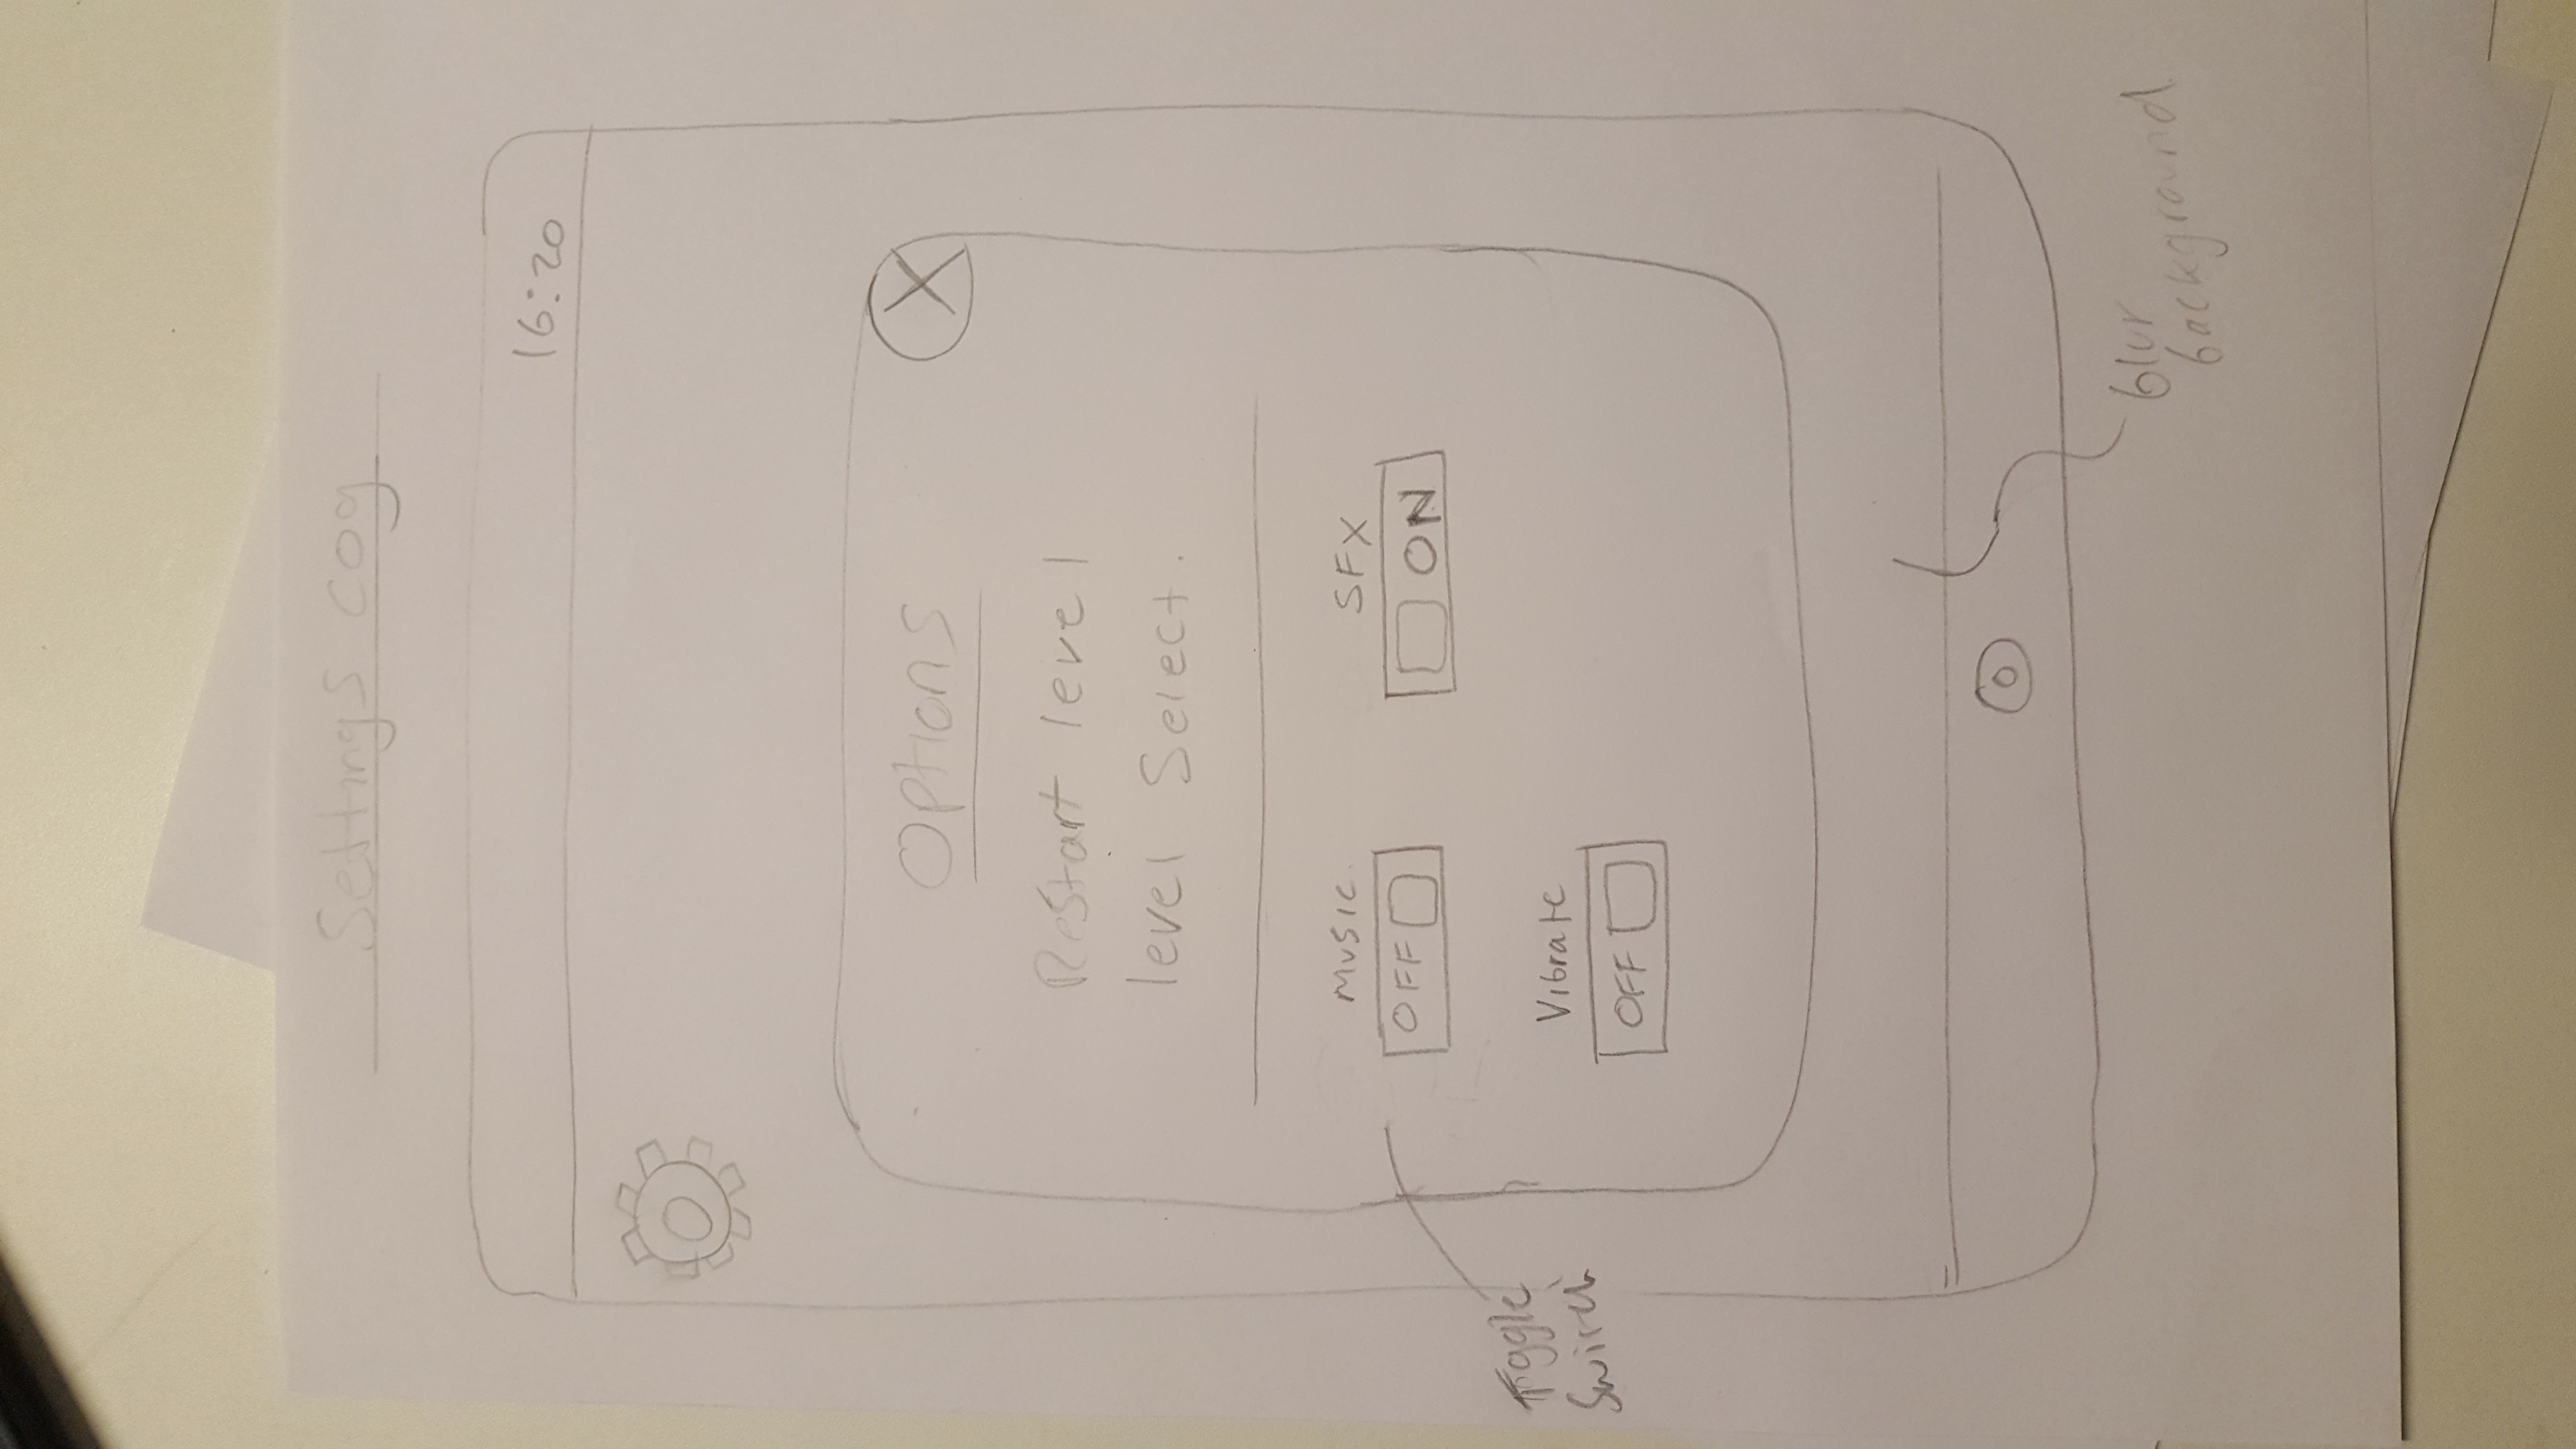 Settings cog
16:20
Options
X
Restart level
level Select.
Music.
SFX
OFF
ON
Toggle
Switch
Vibrate
OFF
blur
background